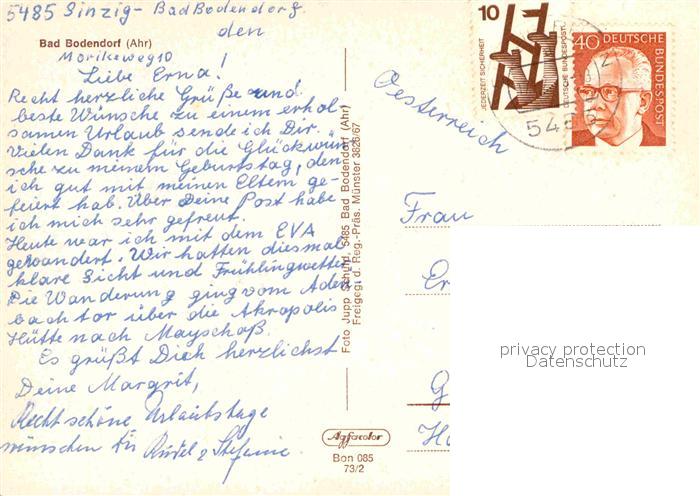 5485 Sinzig- Bad Bodendorf
den
Bad Bodendorf (Ahr)
Mörikeweg 10
Liebe Erna!
Recht herzliche Grüße und
beste Wünsche zu einem erhol-
samen Urlaub sende ich Dir.
Vielen Dank für die Glückwün-
sche zu meinem Geburtstag, den
ich gut mit meinen Eltern ge-
feiert hab. Über Deine Post habe
ich mich sehr gefreut.
Heute war ich mit dem EVA
gewandert. Wir hatten diesmal
klare Sicht und Frühlingswetter.
Die Wanderung ging vom Aden
bachtor über die Akropolis
Hütte nach Mayschoß.
Es grüßt Dich herzlichst
Deine Margrit,
Recht schöne Urlaubstage
wünschen Stefanie
Foto Jupp Schuld, 5485 Bad Bodendorf (Ahr)
Freigeg. d. Reg.-Präs. Münster 3826/67
Agfacolor
Bon 085
73/2
10
JEDERZEIT SICHERHEIT
DEUTSCHE BUNDESPOST
40 DEUTSCHE
BUNDESPOST
Oesterreich
Frau
Er
G
Ha
privacy protection
Datenschutz